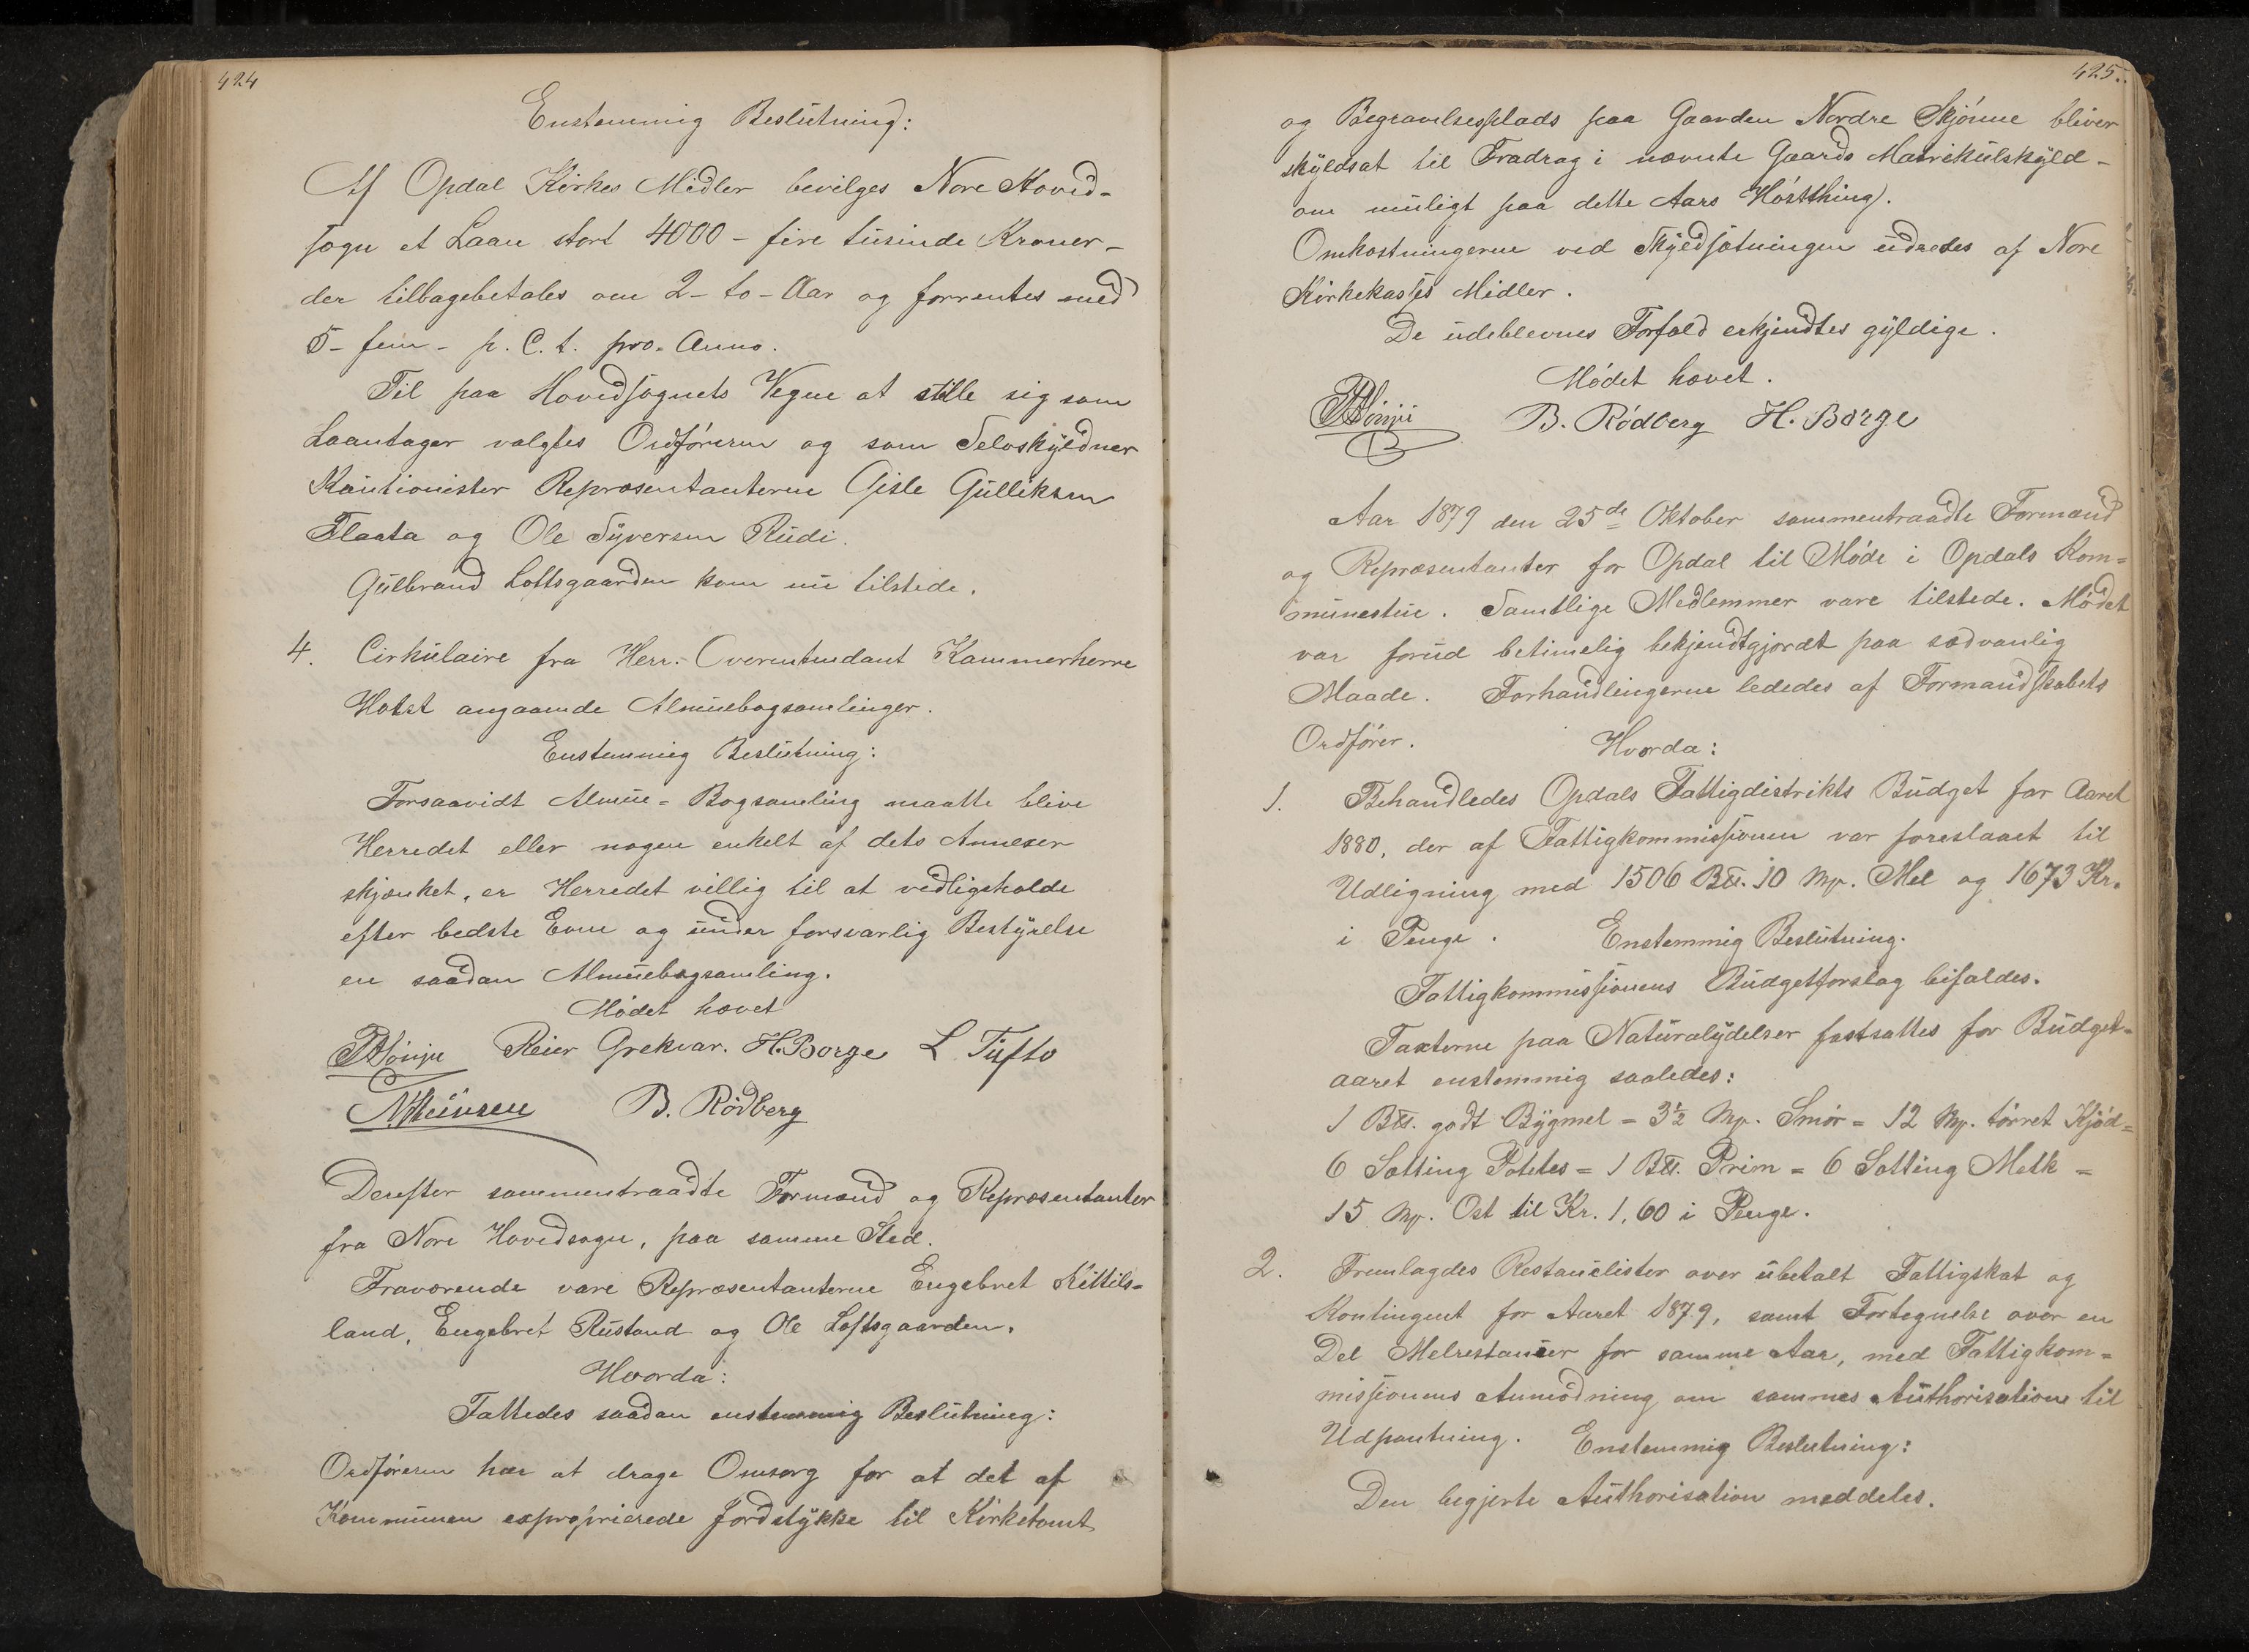 424
Enstemmig Beslutning:
Af Opdal Kirkes Midler bevilges Nore Hoved-
sogn et Laan stort 4000 - fire tusinde Kroner -
der tilbagebetales om 2 - to - Aar og forrentes med
5 - fem - p. C. t. pro. Anno.
Til paa Hovedsognets Vegne at stille sig som
Laantager valgtes Ordføreren og som Selvskyldner
Kautionister Repræsentanterne Gisle Gulliksen
Flaata og Ole Syversen Rudi.
Gulbrand Loftsgaarden kom nu tilstede.
4. Cirkulaire fra Herr. Overintendant Kammerherre
Holst angaaende Almuebogsamlinger.
Enstemmig Beslutning:
Forsaavidt Almue=Bogsamling maatte blive
Herredet eller nogen enkelt af dets Annexer
skjænket, er Herredet villig til at vedligeholde
efter bedste Evne og under forsvarlig Bestyrelse
en saadan Almuebogsamling.
Mødet hævet
Reier Grekvar. H. Borge L Tufto
B. Rødberg
Derefter sammentraadte Formænd og Repræsentanter
fra Nore Hovedsogn, paa samme Sted.
Fraværende vare Repræsentanterne Engebret Kittils=
land, Engebret Rustand og Ole Loftsgaarden.
Hvorda:
Fattedes saadan enstemmig Beslutning:
Ordføreren har at drage Omsorg for at det af
Kommunen exproprierede Jordstykke til Kirketomt
425.
og Begravelsesplads paa Gaarden Nordre Skjønne bliver
skyldsat til Fradrag i nævnte Gaards Matrikulskyld -
om muligt paa dette Aars Høstthing.
Omkostningerne ved Skyldsætningen udredes af Nore
Kirkekasses Midler.
De udeblevnes Forfald erkjendtes gyldige.
Mødet hævet.
B. Rødberg H. Borge
Aar 1879 den 25de Oktober sammentraadte Formænd
og Repræsentanter for Opdal til Møde i Opdals Kom=
munestue. Samtlige Medlemmer vare tilstede. Mødet
var forud betimelig bekjendtgjordt paa sædvanlig
Maade. Forhandlingerne lededes af Formandskabets
Ordfører. Hvorda:
1. Behandledes Opdals Fattigdistrikts Budget for Aaret
1880, der af Fattigkommissionen var foreslaaet til
Udligning med 1506 B℔. 10 Mp. Mel og 1673 Kr.
i Penge. Enstemmig Beslutning.
Fattigkommissionens Budgetforslag bifaldes.
Taxterne paa Naturalydelser fastsattes for Budget=
aaret enstemmig saaledes:
1 B℔. godt Bygmel = 3½ Mp. Smør = 12 Mp. tørret Kjød =
6 Sætting Potetes = 1 B℔. Prim = 6 Sætting Melk =
15 Mp. Ost til Kr. 1,60 i Penge.
2. Fremlagdes Restancelister over ubetalt Fattigskat og
Kontingent for Aaret 1879, samt Fortegnelse over en
Del Melrestancer for samme Aar, med Fattigkom=
missionens Anmodning om sammes Authorisation til
Udpantning. Enstemmig Beslutning:
Den begjerte Authorisation meddeles.